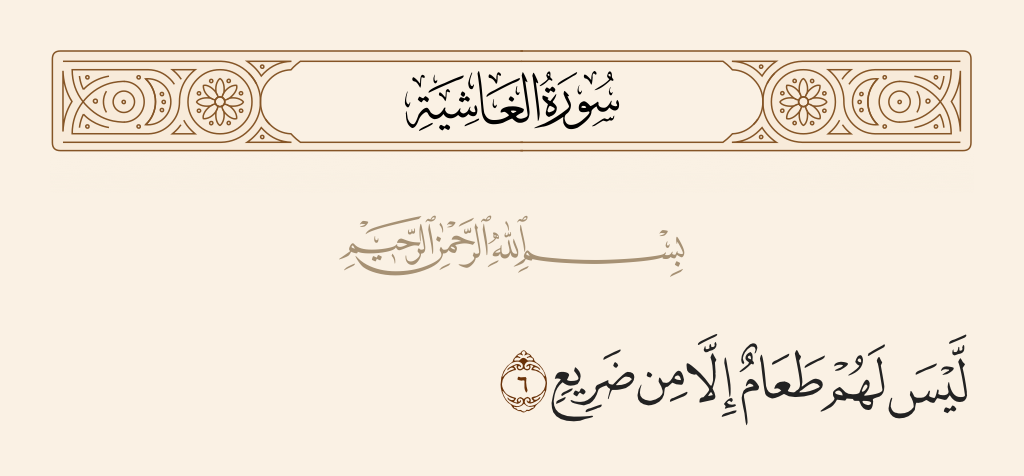 سُورَةُ الْغَاشِيَةِ
بِسْمِ ٱللَّهِ ٱلرَّحْمَٰنِ ٱلرَّحِيمِ
لَّيْسَ لَهُمْ طَعَامٌ إِلَّا مِن ضَرِيعٍ ٦